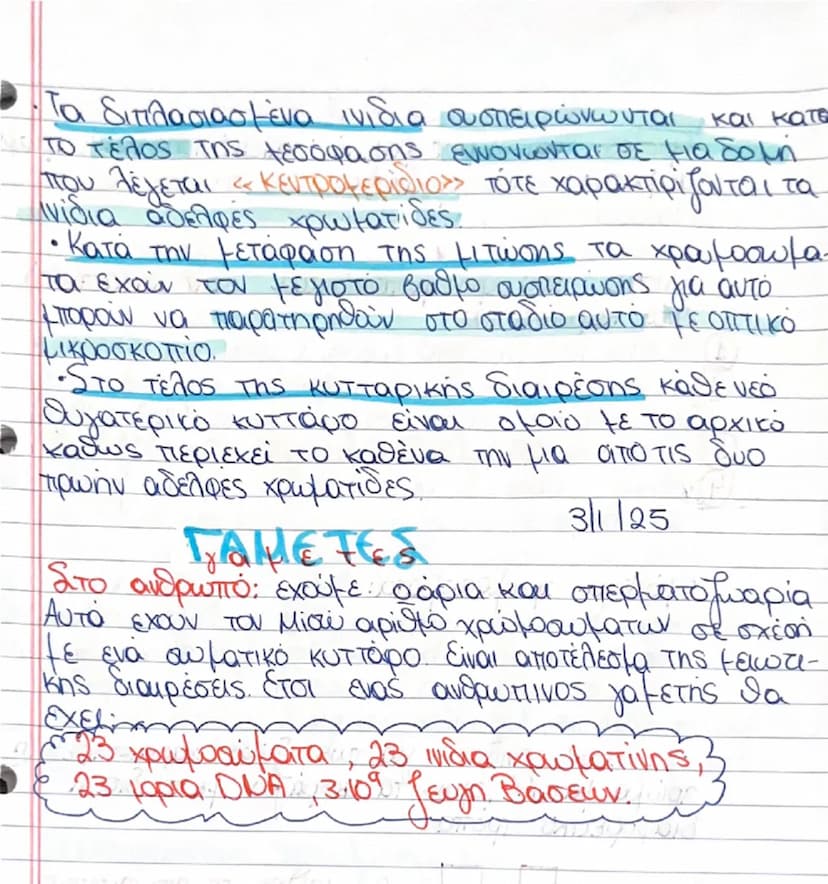 · Τα διπλασιασμένα ινίδια συσπειρώνωνται και κατα
το τέλος της μεσόφασης ενωνωνται σε μια δομή
που λέγεται «κεντρομερίδιο» τότε χαρακτιρίζονται τα
ινίδια αδελφές χρωματίδες.
· Κατά την μετάφαση της μιτώσης τα χρωμοσωμα-
τα εχουν τον μέγιστό βαθμο συσπειρωσης για αυτό
μπορουν να παρατηρηθουν στο σταδιο αυτό με οπτικό
μικροσκοπιο.
· Στο τέλος της κυτταρικής διαιρέσης κάθε νεό
θυγατερικό κυττάρο είναι ομοιό με το αρχικό
καθως περιεχει το καθένα την μια από τις δυο
πρωήν αδελφες χρωματίδες.
3/1/25
ΓΑΜΕΤΕΣ
γαμετες
Στο ανθρωπό: εχουμε ωάρια και σπερματοζωαρία
Αυτά εχουν τον μισό αριθμό χρωμοσωματων σε σχέση
με ενα σωματικό κυττάρο. Είναι αποτέλεσμα της μειωτι-
κης διαιρέσεις. Ετσι ενας ανθρωπινος γαμετής θα
εχει:
23 χρωμοσώματα, 23 ινιδια χρωματίνης,
23 μορια DNA, 3·10⁹ ζευγη βάσεων.